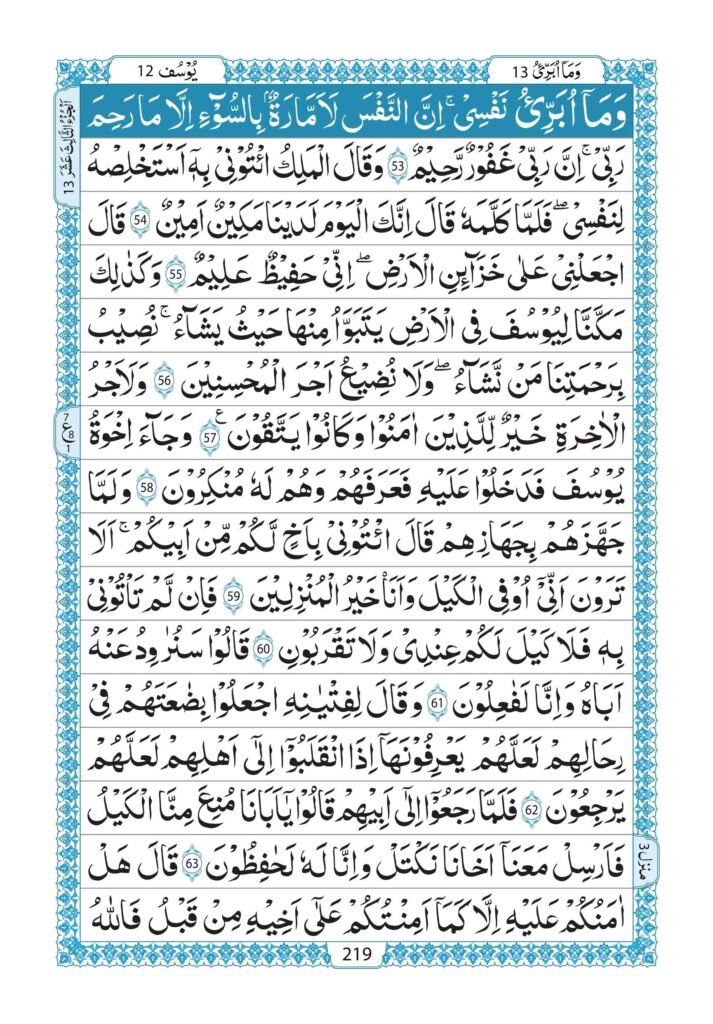 وَمَاۤ اُبَرِّئُ 13
يُوْسُف 12
اَلْجُزْءُ الثَّالِثَ عَشَرَ 13
وَمَاۤ اُبَرِّئُ نَفْسِیْ ۚ اِنَّ النَّفْسَ لَاَمَّارَةٌۢ بِالسُّوْٓءِ اِلَّا مَا رَحِمَ
رَبِّیْ ؕ اِنَّ رَبِّیْ غَفُوْرٌ رَّحِیْمٌ 53 وَقَالَ الْمَلِكُ ائْتُوْنِیْ بِهٖۤ اَسْتَخْلِصْهُ
لِنَفْسِیْ ۚ فَلَمَّا كَلَّمَهٗ قَالَ اِنَّكَ الْیَوْمَ لَدَیْنَا مَكِیْنٌ اَمِیْنٌ 54 قَالَ
اجْعَلْنِیْ عَلٰی خَزَآىِٕنِ الْاَرْضِ ۚ اِنِّیْ حَفِیْظٌ عَلِیْمٌ 55 وَكَذٰلِكَ
مَكَّنَّا لِیُوْسُفَ فِی الْاَرْضِ یَتَبَوَّاُ مِنْهَا حَیْثُ یَشَآءُ ؕ نُصِیْبُ
بِرَحْمَتِنَا مَنْ نَّشَآءُ ۖ وَلَا نُضِیْعُ اَجْرَ الْمُحْسِنِیْنَ 56 وَلَاَجْرُ
الْاٰخِرَةِ خَیْرٌ لِّلَّذِیْنَ اٰمَنُوْا وَكَانُوْا یَتَّقُوْنَ 57 ع وَجَآءَ اِخْوَةُ
7 ع 8 1
یُوْسُفَ فَدَخَلُوْا عَلَیْهِ فَعَرَفَهُمْ وَهُمْ لَهٗ مُنْكِرُوْنَ 58 وَلَمَّا
جَهَّزَهُمْ بِجَهَازِهِمْ قَالَ ائْتُوْنِیْ بِاَخٍ لَّكُمْ مِّنْ اَبِیْكُمْ ۚ اَلَا
تَرَوْنَ اَنِّیْۤ اُوْفِی الْكَیْلَ وَاَنَا خَیْرُ الْمُنْزِلِیْنَ 59 فَاِنْ لَّمْ تَاْتُوْنِیْ
بِهٖ فَلَا كَیْلَ لَكُمْ عِنْدِیْ وَلَا تَقْرَبُوْنِ 60 قَالُوْا سَنُرَاوِدُ عَنْهُ
اَبَاهُ وَاِنَّا لَفٰعِلُوْنَ 61 وَقَالَ لِفِتْیٰنِهِ اجْعَلُوْا بِضَاعَتَهُمْ فِیْ
رِحَالِهِمْ لَعَلَّهُمْ یَعْرِفُوْنَهَاۤ اِذَا انْقَلَبُوْۤا اِلٰۤی اَهْلِهِمْ لَعَلَّهُمْ
یَرْجِعُوْنَ 62 فَلَمَّا رَجَعُوْۤا اِلٰۤی اَبِیْهِمْ قَالُوْا یٰۤاَبَانَا مُنِعَ مِنَّا الْكَیْلُ
فَاَرْسِلْ مَعَنَاۤ اَخَانَا نَكْتَلْ وَاِنَّا لَهٗ لَحٰفِظُوْنَ 63 قَالَ هَلْ
منزل 3
اٰمَنُكُمْ عَلَیْهِ اِلَّا كَمَاۤ اَمِنْتُكُمْ عَلٰۤی اَخِیْهِ مِنْ قَبْلُ فَاللّٰهُ
219